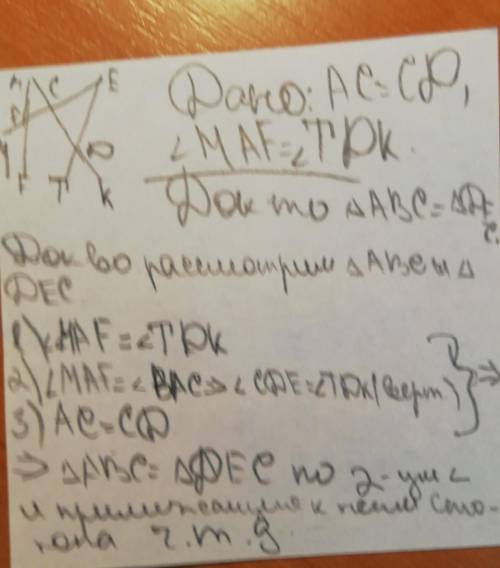 A C E
B D
M F T K
Дано: AC=CD,
∠MAF=∠TDK.
Док то △ABC=△DE
C.
Док во рассмотрим △ABC и △
DEC
1) ∠MAF=∠TDK
2) ∠MAF=∠BAC⇒∠CDE=∠TDK(верт)
3) AC=CD
⇒
⇒ △ABC=△DEC по 2-ум ∠
и прилежащим к ним сто-
рона ч.т.д.